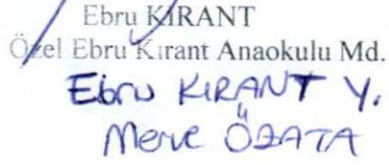 Ebru KIRANT
Özel Ebru Kırant Anaokulu Md.
Ebru KIRANT Y.
Merve ÖZATA